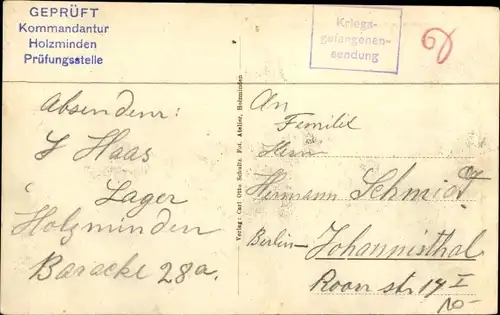 GEPRÜFT
Kommandantur
Holzminden
Prüfungsstelle
Kriegs-
gefangenen-
sendung
Absender:
Haas
Lager
Holzminden
Baracke 28a.
Verlag: Carl Otto Schultz, Fot. Atelier, Holzminden
An
Familie
Herrn
Hermann Schmidt
Berlin-Johannisthal
Roon str 14 I